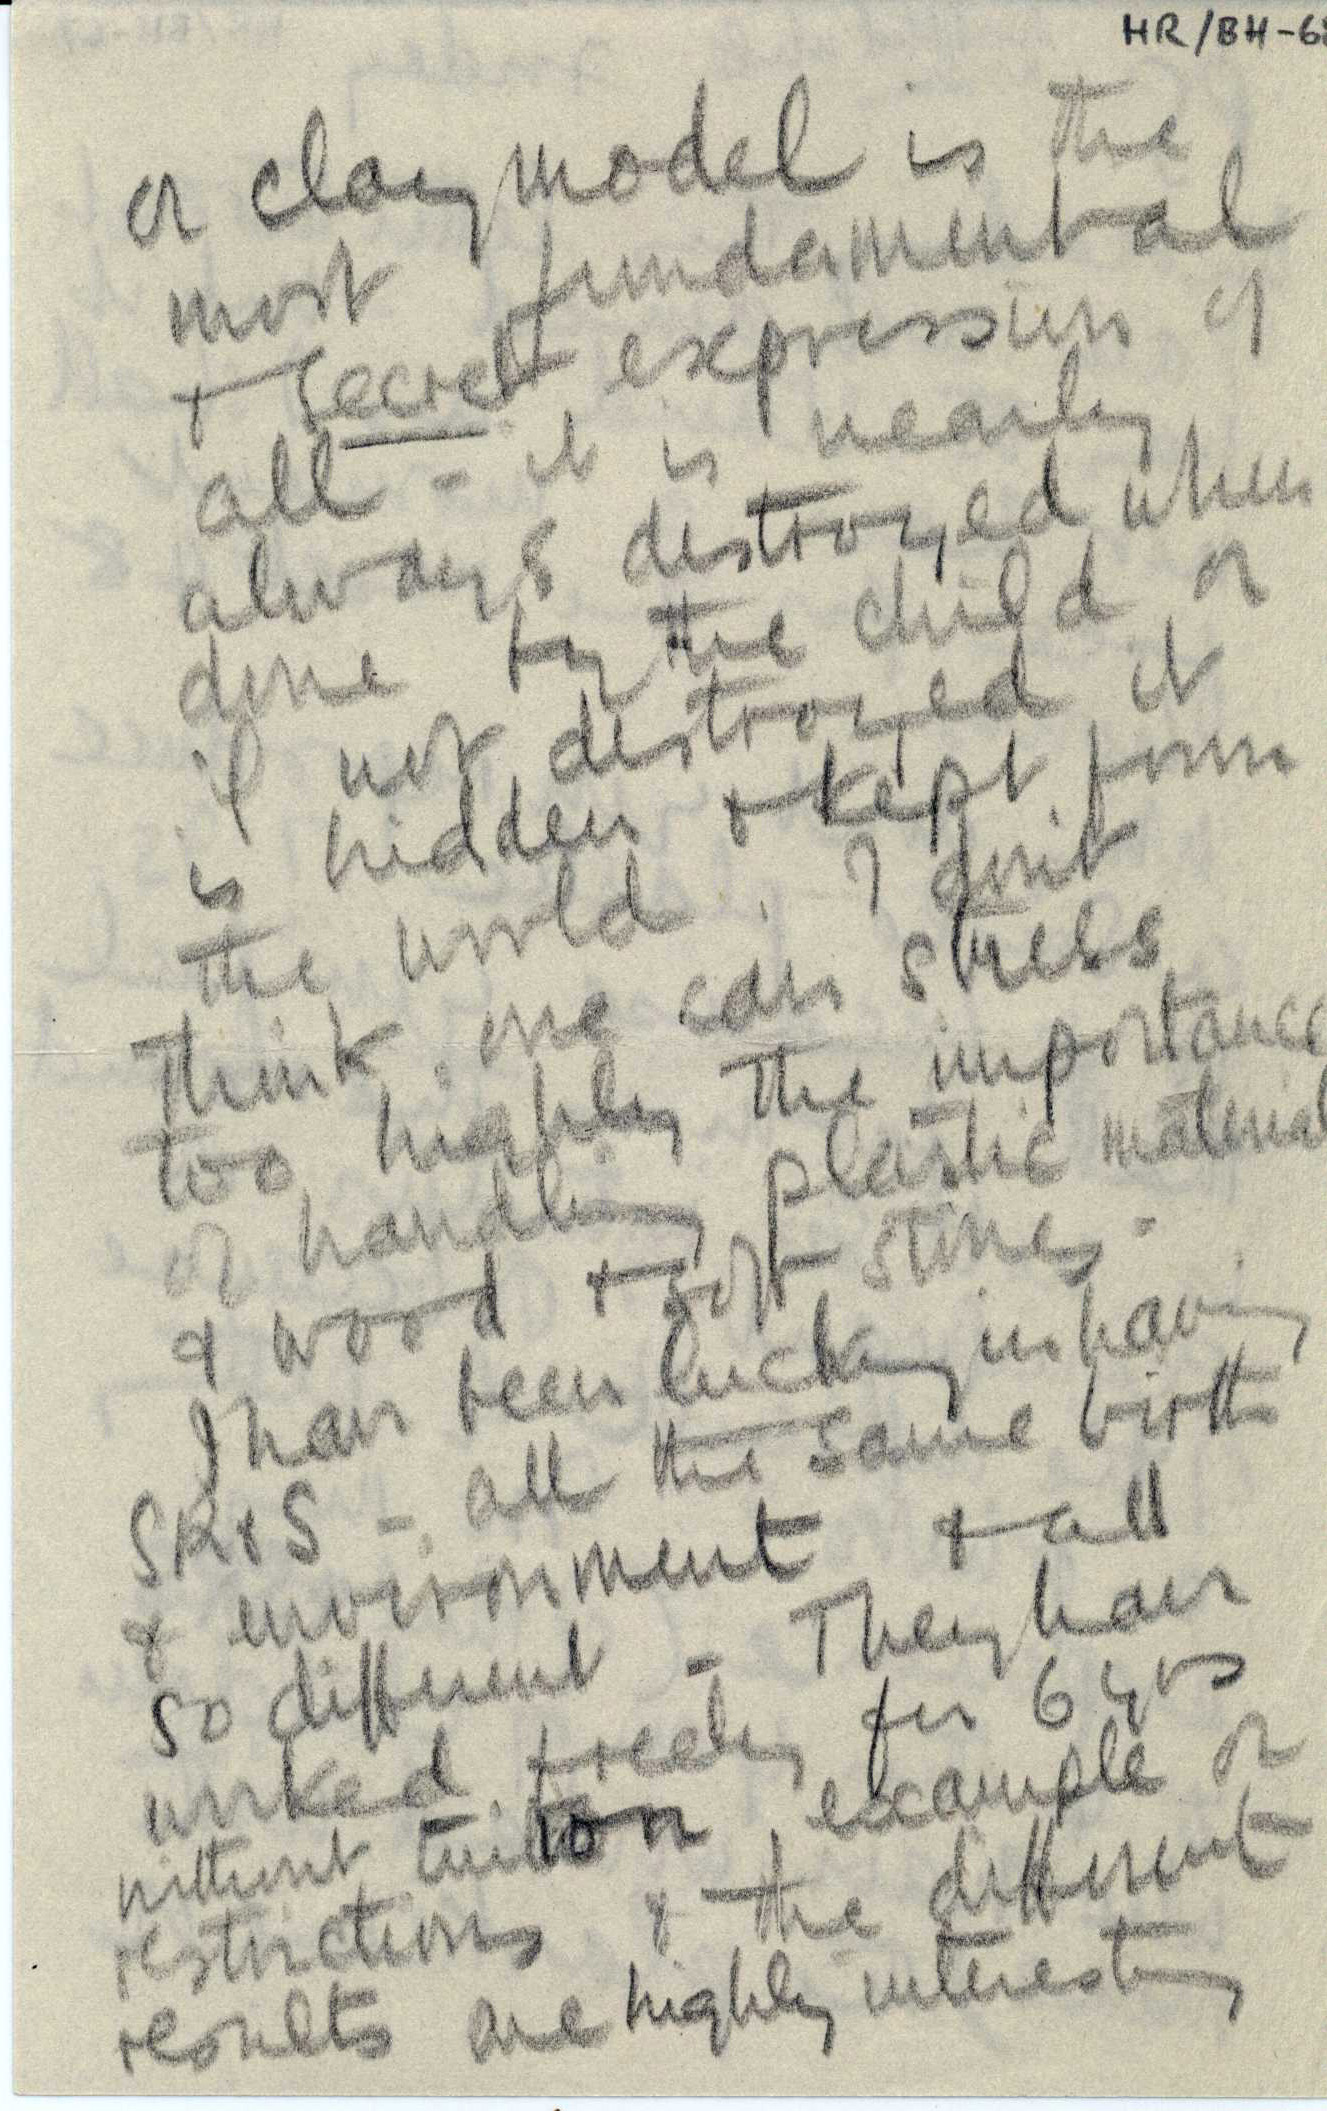 HR/BH-68
or clay model is the
most fundamental
+ secret expression of
all - it is nearly
always destroyed when
done by the child or
if not destroyed it
is hidden + kept from
the world. I don't
think one can stress
too highly the importance
of handling plastic material
& wood + soft stones -
I have been lucky in having
SR+S - all the same birth
& environment + all
so different - They have
worked freely for 6 yrs
without tuition example or
restrictions & the different
results are highly interesting